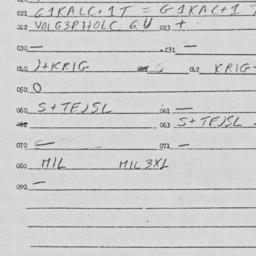 021 G1KALC+1T = G1KAC+1
022 VOLG3PHOLC GU 023 +
030 — 031 —
040 )+KRIG 042 KRIG-
050 O
060 S+TEJSL 061 —
063 S+TEJSL
070 — 071 —
080 MIL MIL3XL
090 —